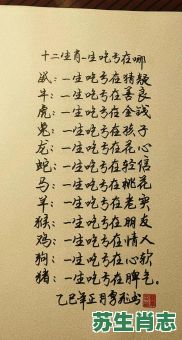 十二生肖一生吃亏在哪
鼠：一生吃亏在猜疑
牛：一生吃亏在善良
虎：一生吃亏在金钱
兔：一生吃亏在孩子
龙：一生吃亏在花心
蛇：一生吃亏在轻信
马：一生吃亏在桃花
羊：一生吃亏在老实
猴：一生吃亏在朋友
鸡：一生吃亏在情人
狗：一生吃亏在心软
猪：一生吃亏在脾气。
乙巳年正月李兆书
苏生肖志